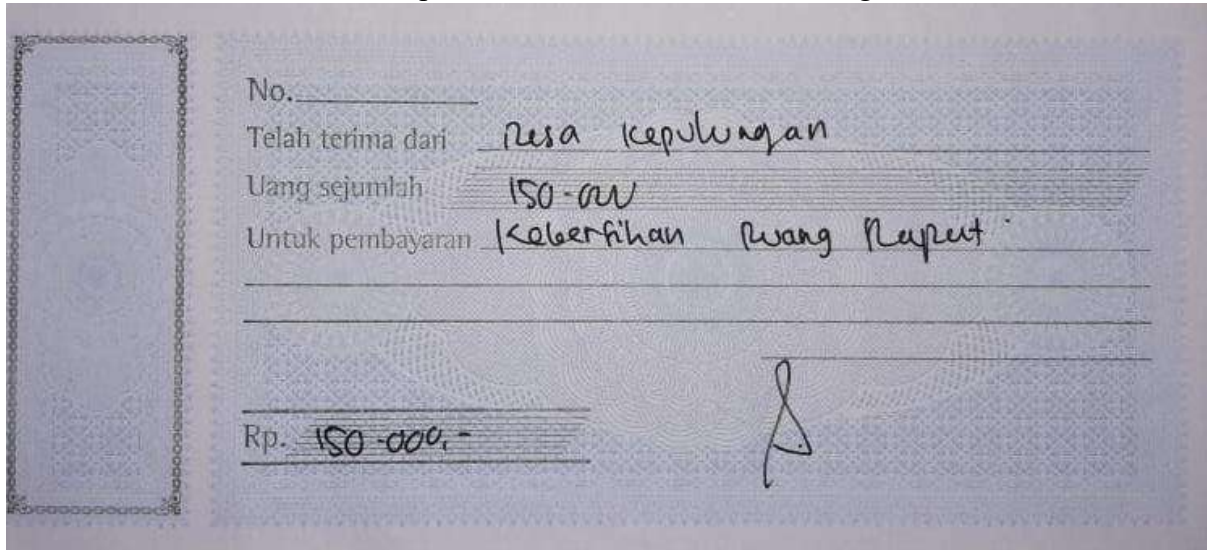 No.
Telah terima dari Desa Kepulungan
Uang sejumlah 150.000
Untuk pembayaran Kebersihan Ruang Rapat
Rp. 150.000,-